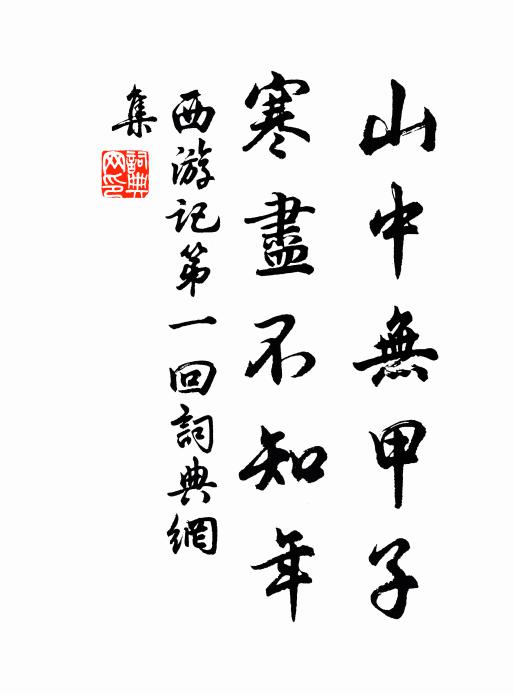 山中無甲子
寒盡不知年
西游记第一回詞典網
集
詞典
网印